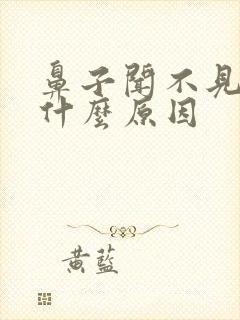 鼻子聞不見
什麼原因
黃藍